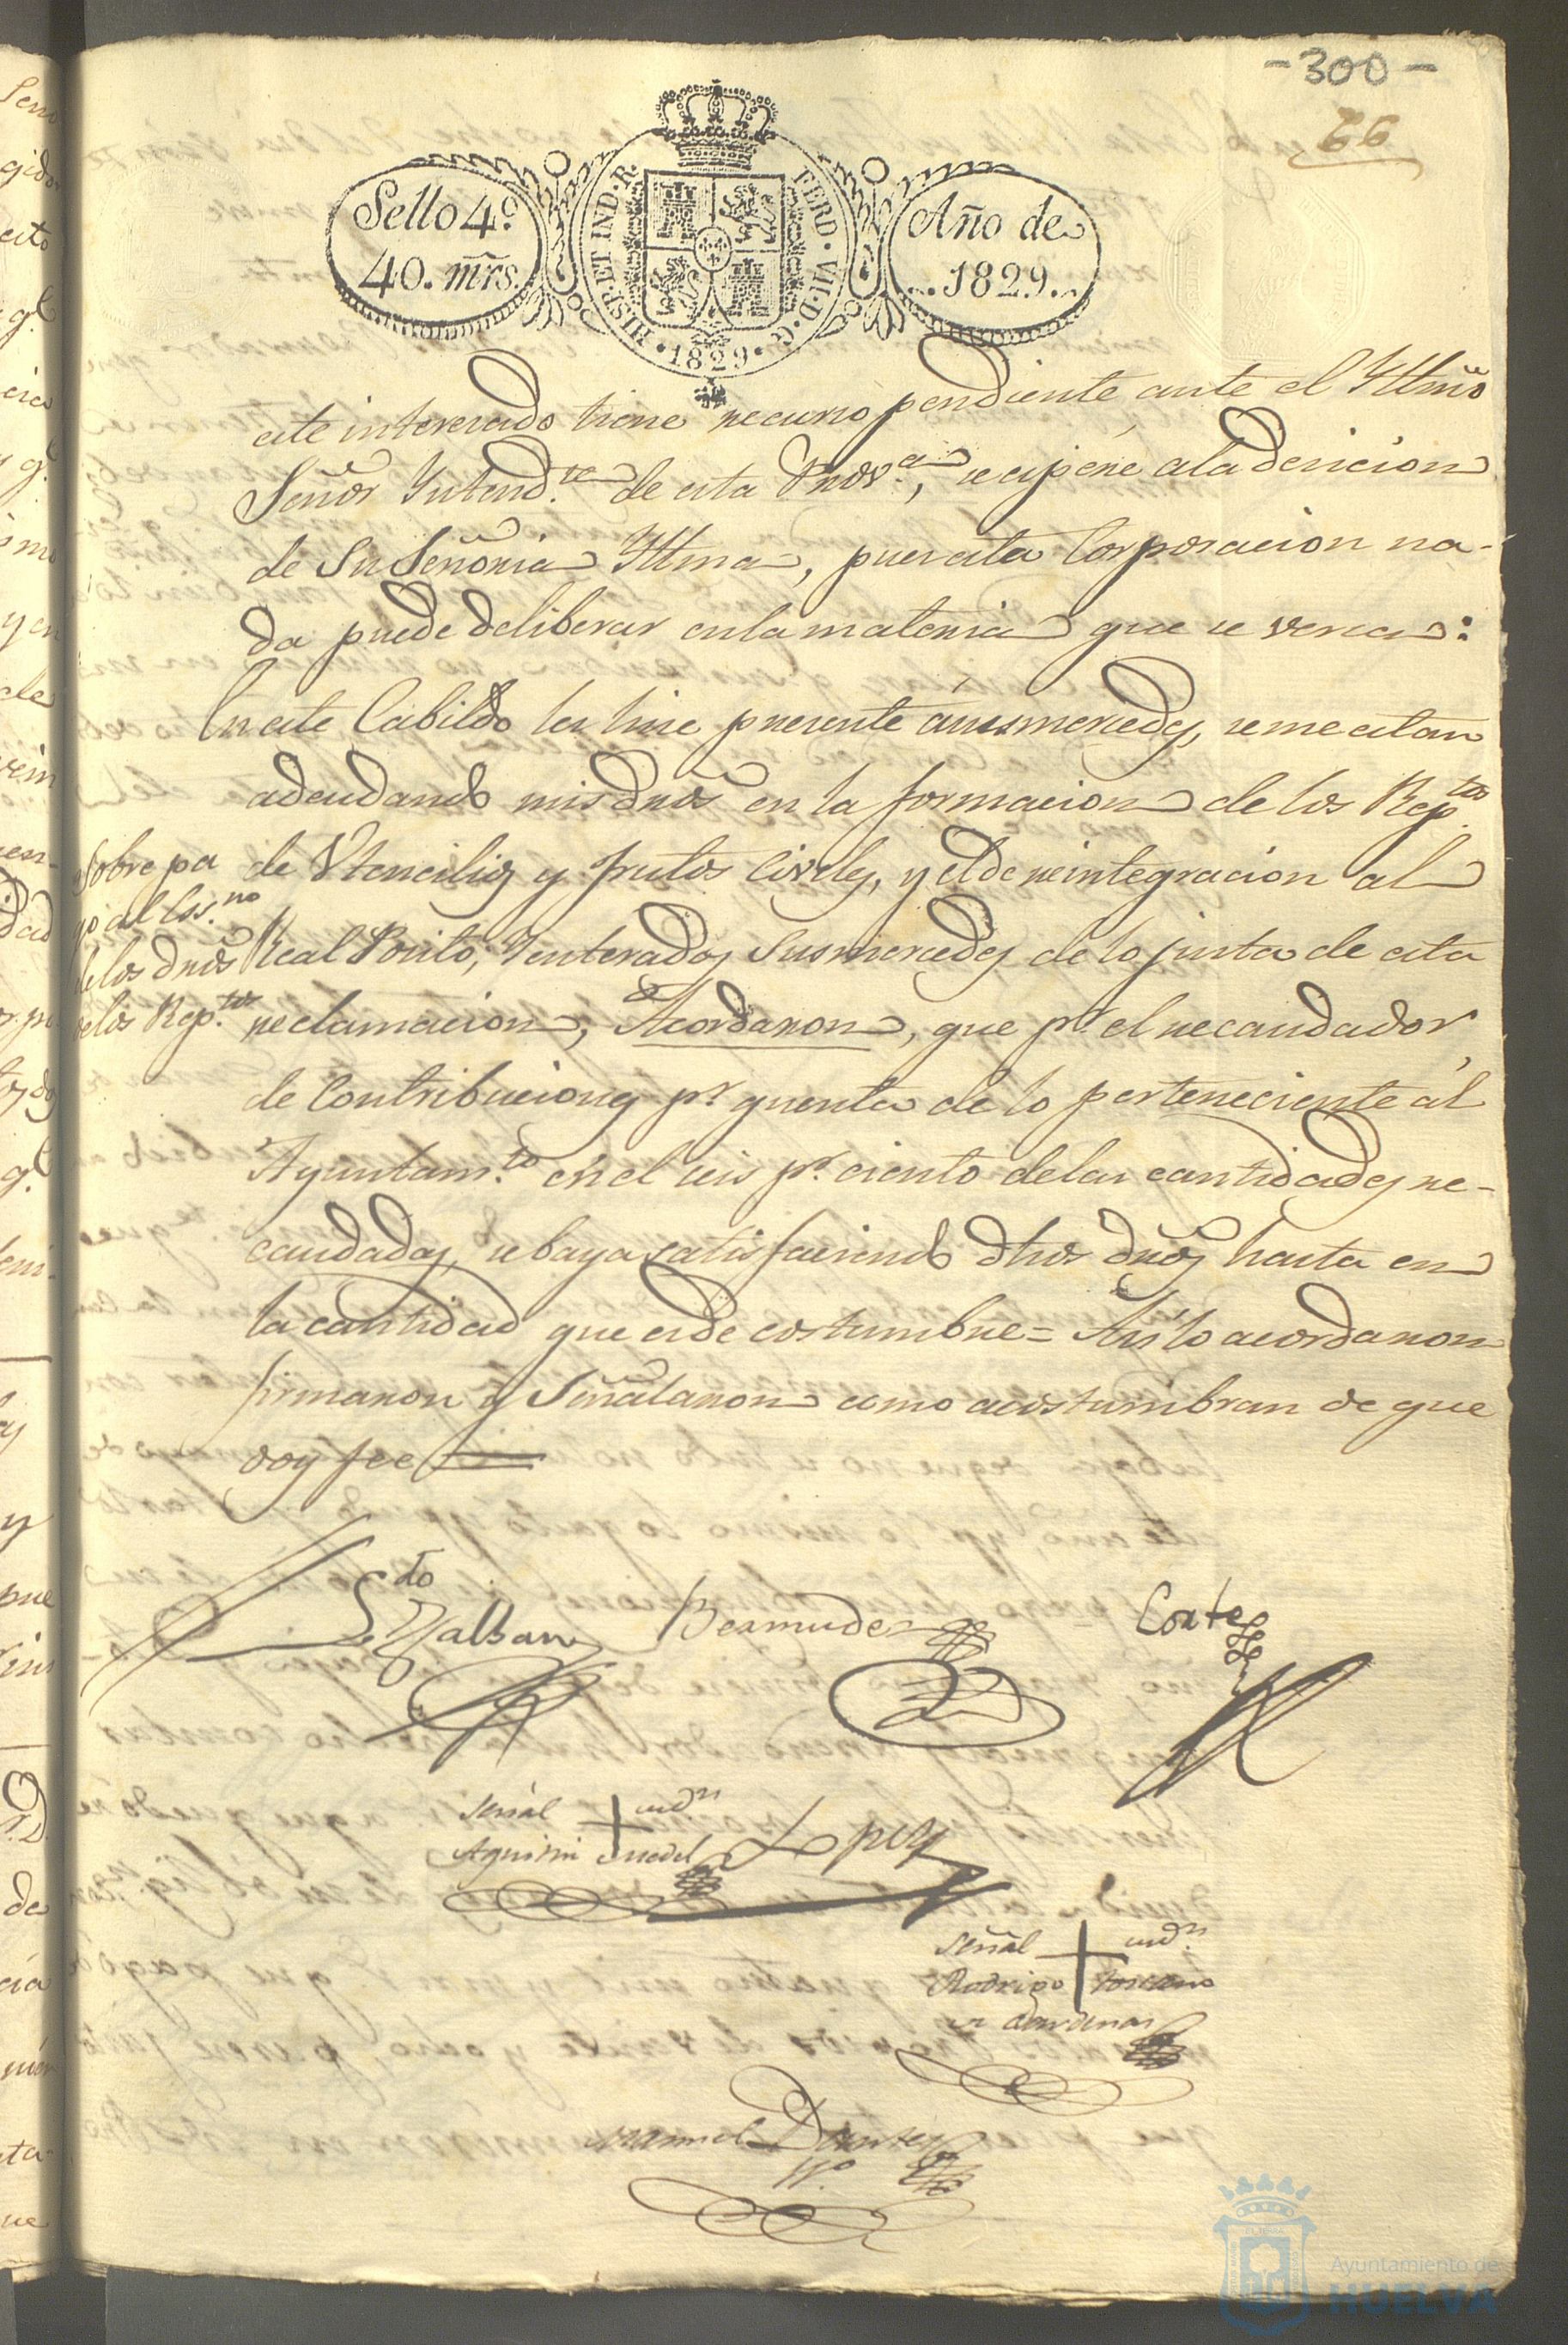 -300-
66
Sello 4º.
40. mrs.
HISP. ET IND. R.
FERD. VII. D. G.
1829
Año de
1829
este interesado tiene recurso pendiente ante el Yltmô
Señor Yntend.te de esta Prov.a, se espere ala decicion
de Su Señoria Yltma, pues esta Corporacion na-
da puede deliberar en la materia que se versa:
En este Cabildo les hise presente ásus mercedes, se me estan
adeudando mis dros en la formacion de los Rep.tos
de Vtencilios y frutos Civiles, y el de reintegracion al
Real Posito, Yenterados Sus mercedes de lo justa de esta
reclamacion, Acordaron, que pr. el recaudador
de Contribuciones pr. quenta de lo perteneciente ál
Ayuntam.to en el seis pr. ciento delas cantidades re-
caudadas, se baya satisfaciendo dhos dros hasta en
la cantidad que es de costumbre = Asi lo acordaron
firmaron y Señalaron como acostumbran de que
doy fee
Sobre pa
go al Ess.no
de los dros
de los Rep.tos
Bermudez
Cortes
Señal
Agustin
Lopez
Señal
Rodrigo Toscano
Manuel
Ayuntamiento de
HUELVA